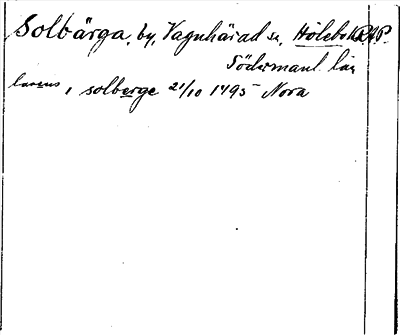 Solbärga, by, Vagnhärad sn, Hölebo hd RAP.
Södermanl. län
laurens i solberge 21/10 1495 Nora